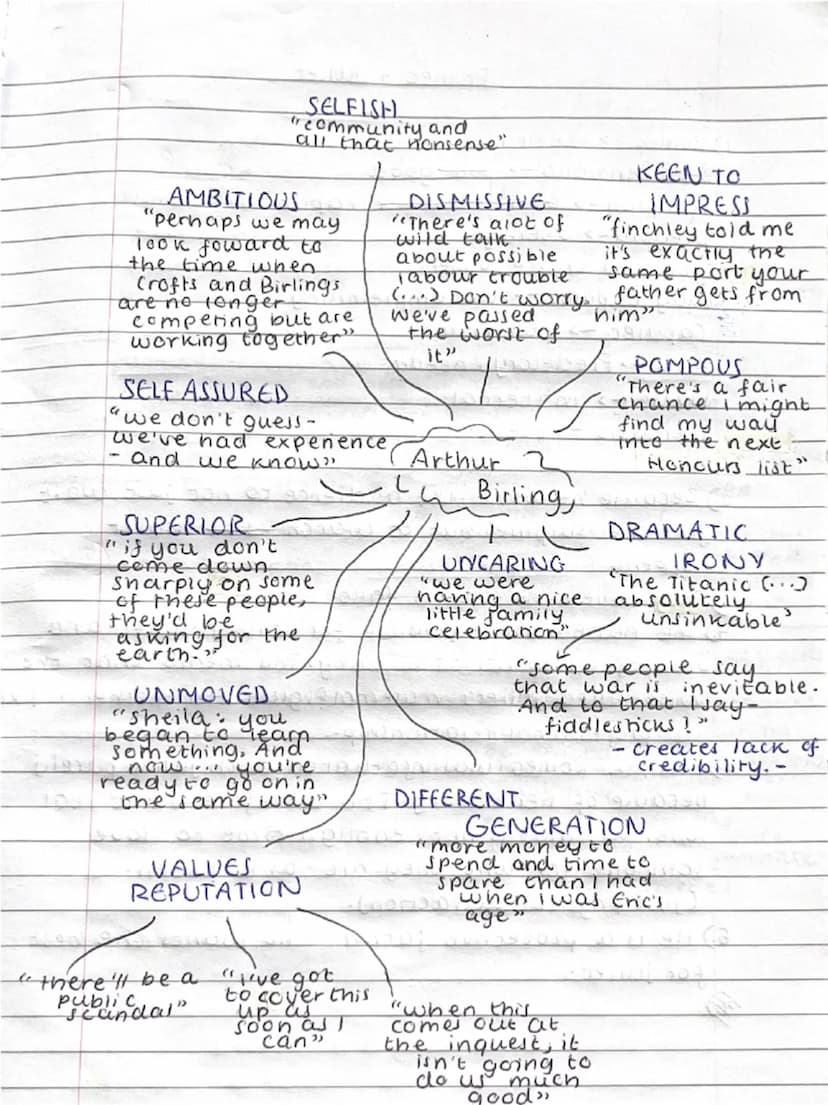 SELFISH
"community and
all that nonsense"
AMBITIOUS
"perhaps we may
look foward to
the time when
Crofts and Birlings
are no longer
competing but are
working together"
DISMISSIVE
"There's alot of
wild talk
about possible
labour trouble
(...) Don't worry,
we've passed
the worst of
it"
KEEN TO
IMPRESS
"finchley told me
it's exactly the
same port your
father gets from
him"
POMPOUS
"There's a fair
chance I might
find my way
into the next
Honours list"
SELF ASSURED
"we don't guess-
we've had experience
- and we know"
Arthur
Birling
SUPERIOR
"if you don't
come down
sharply on some
of these people,
they'd be
asking for the
earth."
UNCARING
"we were
having a nice
little family
celebration"
DRAMATIC
IRONY
"The Titanic (...)
absolutely
unsinkable"
"some people say
that war is inevitable.
And to that I say-
fiddlesticks!"
- creates lack of
credibility. -
UNMOVED
"Sheila: you
began to learn
something, And
now.... you're
ready to go on in
the same way"
DIFFERENT
GENERATION
"more money to
spend and time to
spare than I had
when I was Eric's
age"
VALUES
REPUTATION
"there'll be a
public
scandal"
"I've got
to cover this
up as
soon as I
can"
"when this
comes out at
the inquest, it
isn't going to
do us much
good"